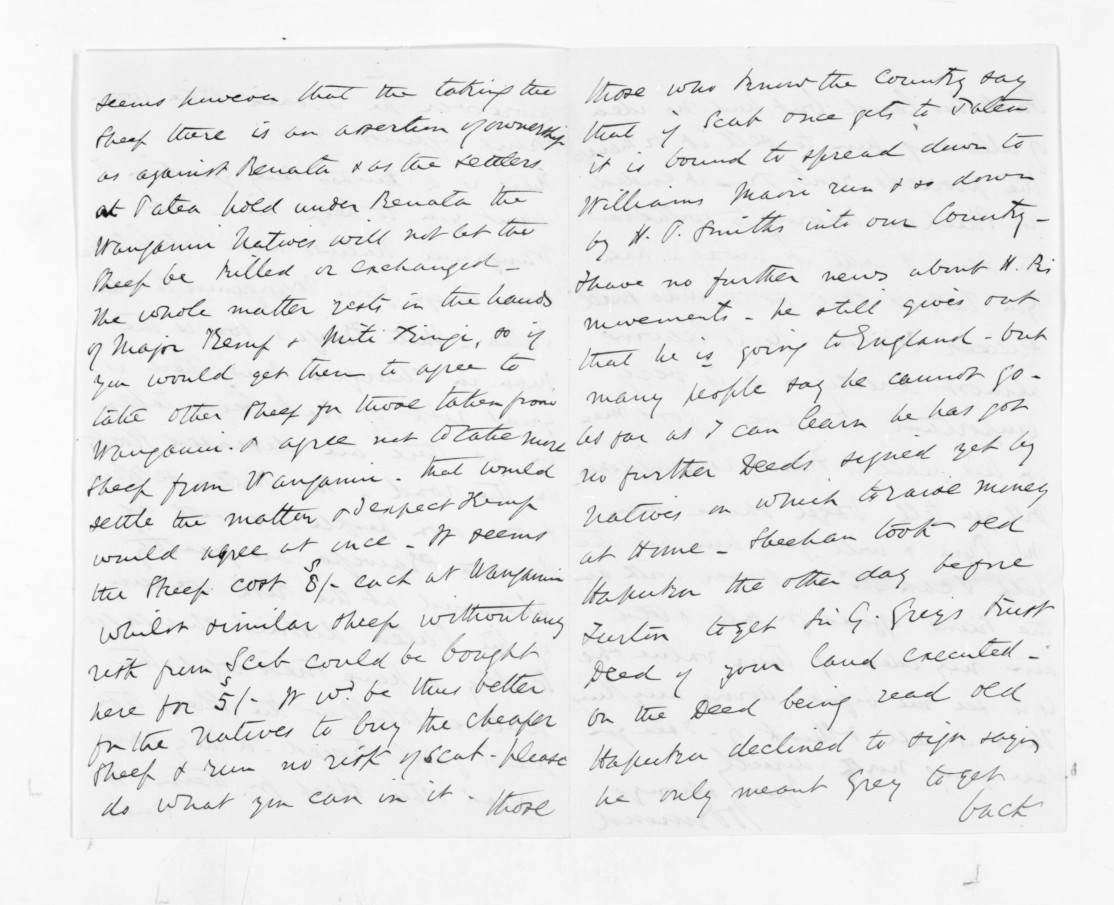 seems however that the taking the
Sheep there is an assertion of ownership
as against Renata & as the settlers
at Patea hold under Renata the
Wanganui Natives will not let the
Sheep be killed or exchanged -
The whole matter rests in the hands
of Major Kemp & Mete Kingi, so if
you would get them to agree to
take other Sheep for those taken from
Wanganui. & agree not to take more
Sheep from Wanganui - that would
settle the matter & I expect Kemp
would agree at once - It seems
the Sheep cost 8/- each at Wanganui
whilst similar sheep without any
risk from Scab could be bought
here for 5/- It wd. be thus better
for the Natives to buy the cheaper
Sheep & run no risk of Scab - please
do what you can in it - those
those who know the Country say
that if Scab once gets to Patea
it is bound to spread down to
Williams Maori run & so down
by H. P. Smiths into our Country -
I have no further news about H. Rs
movements - he still gives out
that he is going to England - but
many people say he cannot go -
As far as I can learn he has got
no further Deeds signed yet by
Natives on which to raise money
at Home - Sheehan took old
Hapuka the other day before
Turton to get Sir G. Greys Trust
Deed of your land executed -
on the Deed being read old
Hapuka declined to sign saying
he only meant Grey to get
back